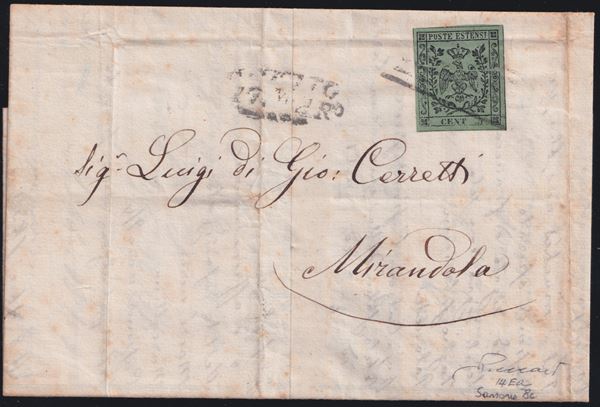 POSTE ESTENSI
CENT
19. MAR
Sigr. Luigi di Gio: Cerretti
Mirandola
14Ea
Sassone 8c